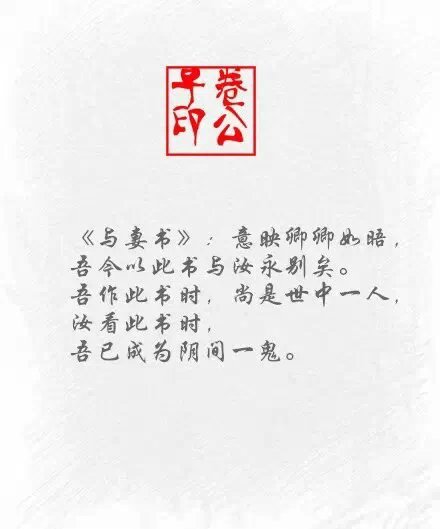 卷公
子印
《与妻书》：意映卿卿如晤，
吾今以此书与汝永别矣。
吾作此书时，尚是世中一人，
汝看此书时，
吾已成为阴间一鬼。